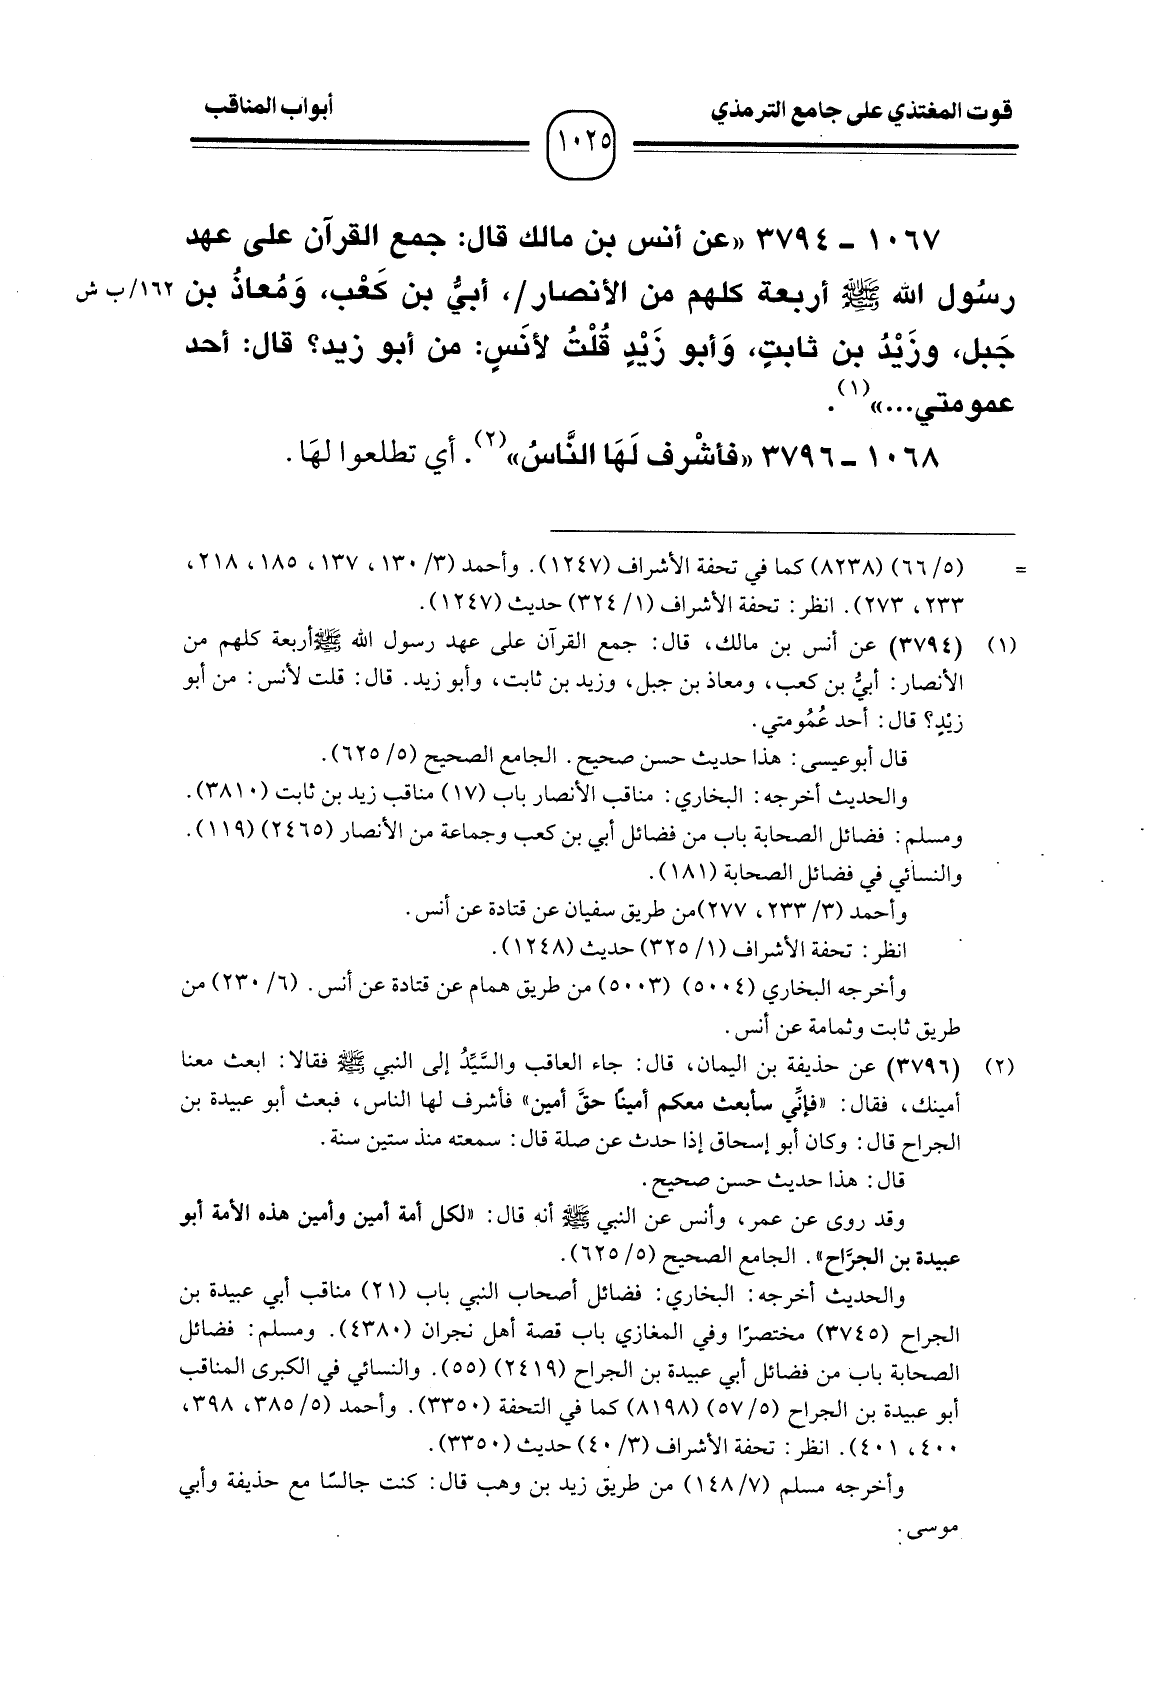 قوت المغتذي على جامع الترمذي
١٠٢٥
أبواب المناقب
١٠٦٧ - ٣٧٩٤ «عن أنس بن مالك قال: جمع القرآن على عهد
رسُول الله ﷺ أربعة كلهم من الأنصار/، أبيُّ بن كَعْب، وَمُعاذُ بن ١٦٢/ب ش
جَبل، وزَيْدُ بن ثابتٍ، وَأبو زَيْدٍ قُلْتُ لأنَسٍ: من أبو زيد؟ قال: أحد
عمومتي...»(١).
١٠٦٨ - ٣٧٩٦ «فأشْرف لَهَا النَّاسُ»(٢). أي تطلعوا لهَا.
= (٥/ ٦٦) (٨٢٣٨) كما في تحفة الأشراف (١٢٤٧). وأحمد (٣/ ١٣٠، ١٣٧، ١٨٥، ٢١٨،
٢٣٣، ٢٧٣). انظر: تحفة الأشراف (١/ ٣٢٤) حديث (١٢٤٧).
(١) (٣٧٩٤) عن أنس بن مالك، قال: جمع القرآن على عهد رسول الله ﷺ أربعة كلهم من
الأنصار: أبيُّ بن كعب، ومعاذ بن جبل، وزيد بن ثابت، وأبو زيد. قال: قلت لأنس: من أبو
زيْدٍ؟ قال: أحد عُمُومتي.
قال أبوعيسى: هذا حديث حسن صحيح. الجامع الصحيح (٥/ ٦٢٥).
والحديث أخرجه: البخاري: مناقب الأنصار باب (١٧) مناقب زيد بن ثابت (٣٨١٠).
ومسلم: فضائل الصحابة باب من فضائل أبي بن كعب وجماعة من الأنصار (٢٤٦٥) (١١٩).
والنسائي في فضائل الصحابة (١٨١).
وأحمد (٣/ ٢٣٣، ٢٧٧)من طريق سفيان عن قتادة عن أنس.
انظر: تحفة الأشراف (١/ ٣٢٥) حديث (١٢٤٨).
وأخرجه البخاري (٥٠٠٤) (٥٠٠٣) من طريق همام عن قتادة عن أنس. (٦/ ٢٣٠) من
طريق ثابت وثمامة عن أنس.
(٢) (٣٧٩٦) عن حذيفة بن اليمان، قال: جاء العاقب والسَّيِّدُ إلى النبي ﷺ فقالا: ابعث معنا
أمينك، فقال: «فإنِّي سأبعث معكم أمينًا حقَّ أمين» فأشرف لها الناس، فبعث أبو عبيدة بن
الجراح قال: وكان أبو إسحاق إذا حدث عن صلة قال: سمعته منذ ستين سنة.
قال: هذا حديث حسن صحيح.
وقد روى عن عمر، وأنس عن النبي ﷺ أنه قال: «لكل أمة أمين وأمين هذه الأمة أبو
عبيدة بن الجرَّاح». الجامع الصحيح (٥/ ٦٢٥).
والحديث أخرجه: البخاري: فضائل أصحاب النبي باب (٢١) مناقب أبي عبيدة بن
الجراح (٣٧٤٥) مختصرًا وفي المغازي باب قصة أهل نجران (٤٣٨٠). ومسلم: فضائل
الصحابة باب من فضائل أبي عبيدة بن الجراح (٢٤١٩) (٥٥). والنسائي في الكبرى المناقب
أبو عبيدة بن الجراح (٥/ ٥٧) (٨١٩٨) كما في التحفة (٣٣٥٠). وأحمد (٥/ ٣٨٥، ٣٩٨،
٤٠٠، ٤٠١). انظر: تحفة الأشراف (٣/ ٤٠) حديث (٣٣٥٠).
وأخرجه مسلم (٧/ ١٤٨) من طريق زيد بن وهب قال: كنت جالسًا مع حذيفة وأبي
موسى.